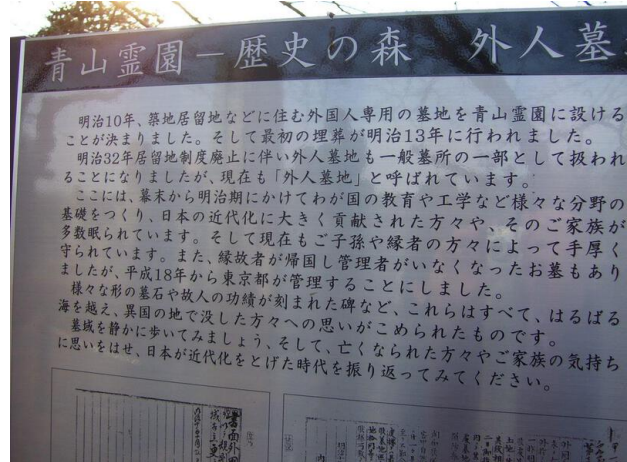 青山霊園－歴史の森　外人墓
明治10年、築地居留地などに住む外国人専用の墓地を青山霊園に設ける
ことが決まりました。そして最初の埋葬が明治13年に行われました。
明治32年居留地制度廃止に伴い外人墓地も一般墓所の一部として扱われ
ることになりましたが、現在も「外人墓地」と呼ばれています。
ここには、幕末から明治期にかけてわが国の教育や工学など様々な分野の
基礎をつくり、日本の近代化に大きく貢献された方々や、そのご家族が
多数眠られています。そして現在もご子孫や縁者の方々によって手厚く
守られています。また、縁故者が帰国し管理者がいなくなったお墓もあり
ましたが、平成18年から東京都が管理することにしました。
様々な形の墓石や故人の功績が刻まれた碑など、これらはすべて、はるばる
海を越え、異国の地で没した方々への思いがこめられたものです。
墓域を静かに歩いてみましょう、そして、亡くなられた方々やご家族の気持ち
に思いをはせ、日本が近代化をとげた時代を振り返ってみてください。